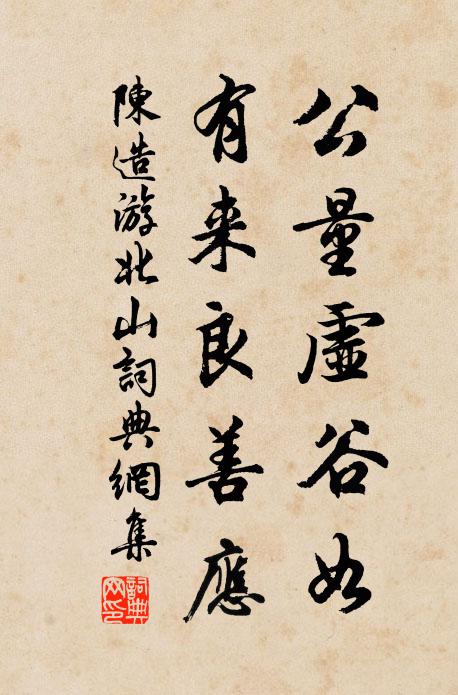 公量虛谷如
有来良善應
陳造游北山詞典網集
詞典网印